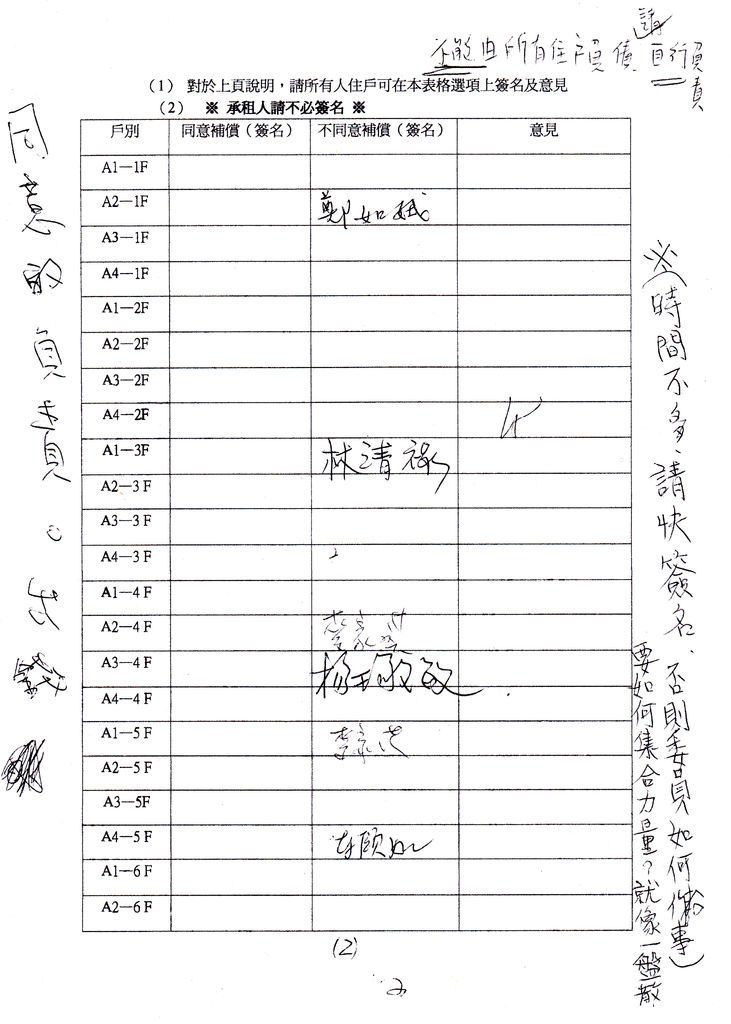 不能由所有住戶負債
請自行負責
(1) 對於上頁說明，請所有人住戶可在本表格選項上簽名及意見
(2) ※ 承租人請不必簽名 ※
戶別 同意補償（簽名） 不同意補償（簽名） 意見
A1—1F
A2—1F 鄭如
A3—1F
A4—1F
A1—2F
A2—2F
A3—2F
A4—2F
A1—3F 林清祿
A2—3F
A3—3F
A4—3F
A1—4F
A2—4F
A3—4F 楊敏
A4—4F
A1—5F 李
A2—5F
A3—5F
A4—5F 頤如
A1—6F
A2—6F
(2)
2
同意的負責。出錢
※(時間不多、請快簽名、否則委員如何做事)
要如何集合力量？就像一盤散